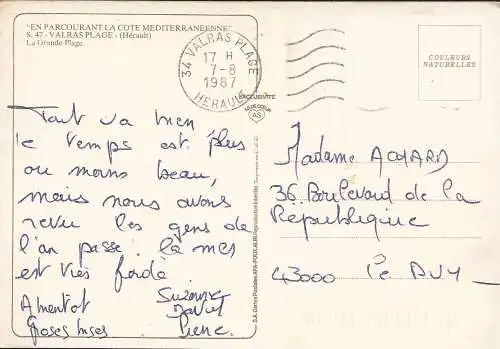 "EN PARCOURANT LA COTE MEDITERRANEENNE"
S. 47 - VALRAS PLAGE - (Hérault)
La Grande Plage.
34 VALRAS PLAGE
17 H
7-8
1987
HERAULT
COULEURS
NATURELLES
EXCLUSIVITE
AS DE COEUR
AS
Tout va bien
le temps est plus
ou moins beau,
mais nous avons
revu les gens de
l'an passé. la mer
est très forde
A bientot Suzanne
Groses bises. Pierre
Madame ACHARD
36 Boulevard de la
République
43000 Le PUY